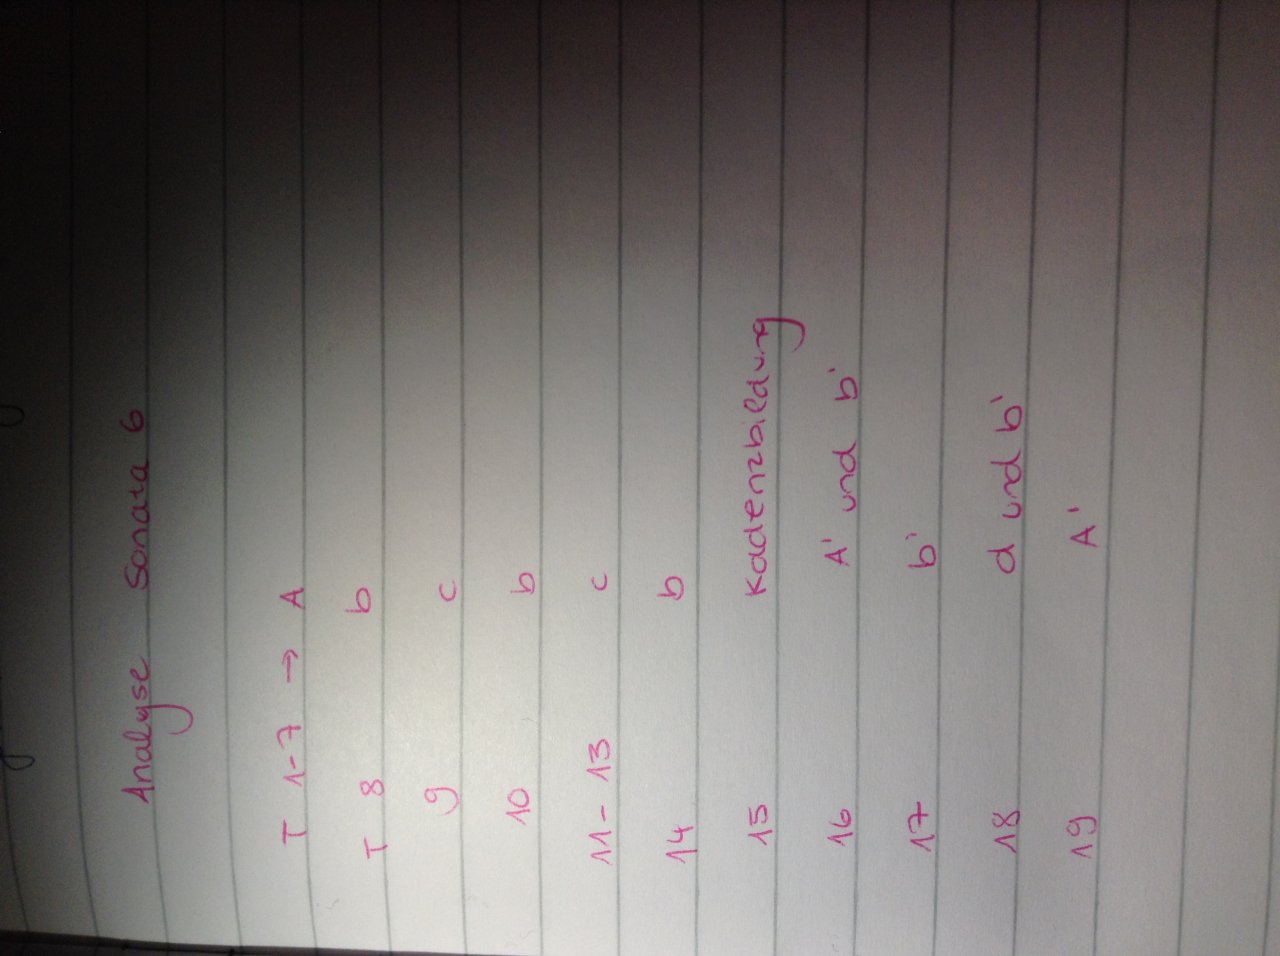 Analyse Sonata 6
T 1-7 → A
T 8 b
9 c
10 b
11-13 c
14 b
15 Kadenzbildung
16 A' und b'
17 b'
18 d und b'
19 A'